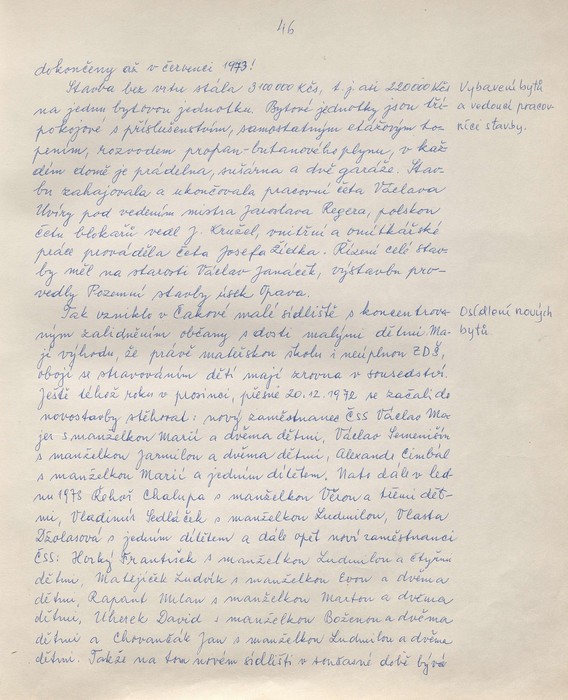 46
dokončeny až v červenci 1973!
Stavba bez vrtu stála 3100000 Kčs, t. j asi 220000 Kčs
na jednu bytovou jednotku. Bytové jednotky jsou tří-
pokojové s příslušenstvím, samostatným etážovým to-
pením, rozvodem propan-butanového plynu, v kaž-
dém domě je prádelna, sušárna a dvě garáže. Stav-
bu zahajovala a ukončovala pracovní četa Václava
Uvíry pod vedením mistra Jaroslava Regera, polskou
četu blokařů vedl J. Kružel, vnitřní a omítkářské
práce prováděla četa Josefa Žiدka. Řízení celé stav-
by měl na starosti Václav Janáček, výstavbu pro-
vedly Pozemní stavby úsek Opava.
Vybavení bytů
a vedoucí pracov-
níci stavby.
Tak vzniklo v Čakové malé sídliště s koncentrova-
ným zalidněním občany s dosti malými dětmi. Ma-
jí výhodu, že právě mateřskou školu i neúplnou ZDŠ,
obojí se stravováním dětí mají zrovna v sousedství.
Ještě téhož roku v prosinci, přesně 20. 12. 1972 se začali do
novostavby stěhovat: nový zaměstnanec ČSS Václav Ma-
jer s manželkou Marií a dvěma dětmi, Václav Semeničin
s manželkou Jarmilou a dvěma dětmi, Alexandr Cimbál
s manželkou Marií a jedním dítětem. Nato dále v led-
nu 1973 Řehoř Chalupa s manželkou Věrou a třemi dět-
mi, Vladimír Sedláček s manželkou Ludmilou, Vlasta
Džolasová s jedním dítětem a dále opět noví zaměstnanci
ČSS: Horký František s manželkou Ludmilou a čtyřmi
dětmi, Matejíček Ludvík s manželkou Evou a dvěma
dětmi, Rapant Milan s manželkou Martou a dvěma
dětmi, Uherek David s manželkou Boženou a dvěma
dětmi a Chovančák Jan s manželkou Ludmilou a dvěma
dětmi. Takže na tom novém sídlišti v současné době bývá
Osídlení nových
bytů.